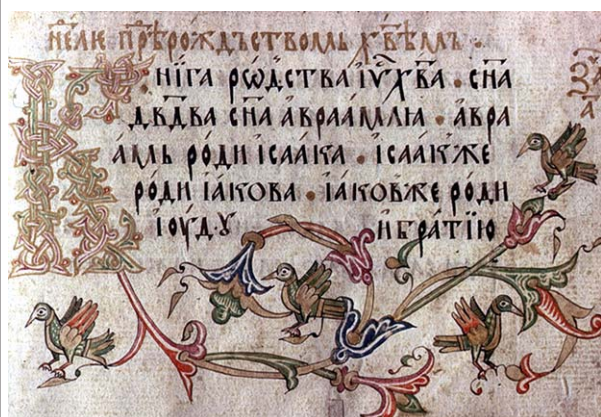 не́лѧ прⷤе рождьствомь хв҃ѣмь ·
Кни́га рѡдства і҆у҃ х҃ва · сн҃а
дв҃два сн҃а а҆враа́млѧ · а҆вра
а́мль ро́ди і҆саа́ка · і҆саа́кже
ро́ди і҆а́кова · і҆а́ковже ро́ди
і҆оу́дꙋ и҆бра́тїю